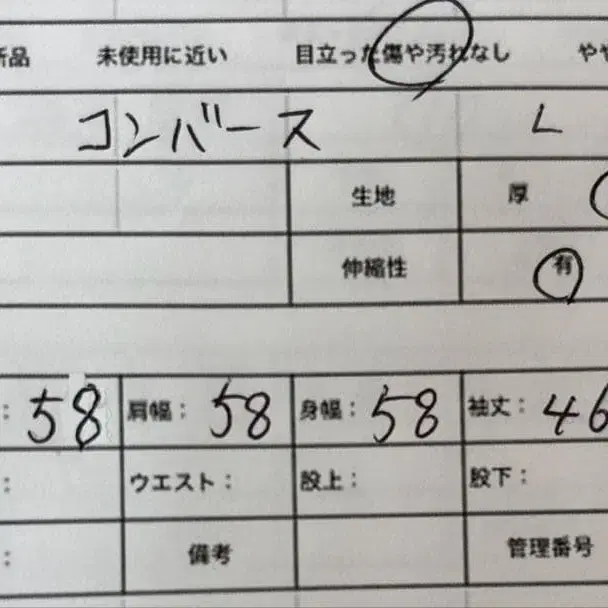 新品 未使用に近い 目立った傷や汚れなし やや
コンバース L
生地 厚
伸縮性 有
: 58 肩幅: 58 身幅: 58 袖丈: 46
: ウエスト: 股上: 股下:
: 備考 管理番号